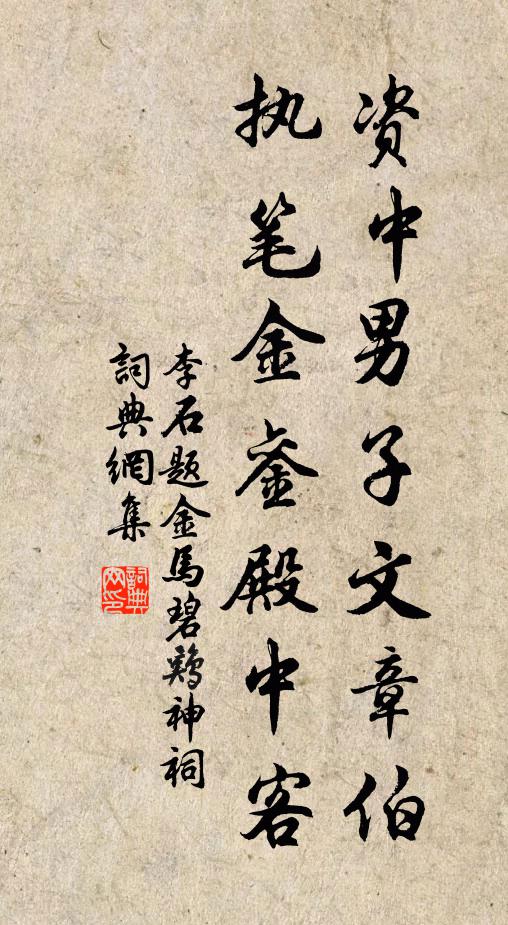 资中男子文章伯
执笔金銮殿中客
李石题金馬碧鷄神祠
詞典網集
詞典
网印